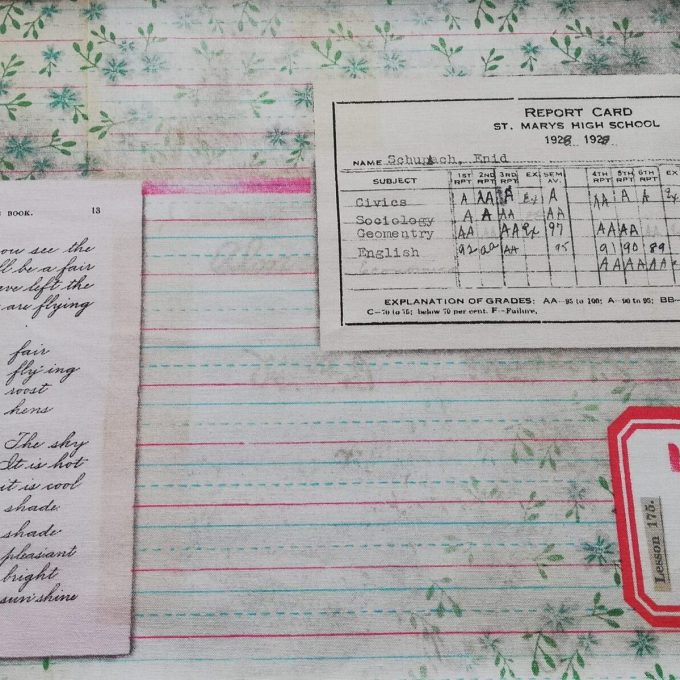 BOOK. 13
ou see the
ll be a fair
ave left the
are flying
fair
flying
roost
hens
The sky
It is hot
it is cool
shade.
shade
pleasant
bright
sunshine
REPORT CARD
ST. MARYS HIGH SCHOOL
1928 1929
NAME Schupach, Enid
SUBJECT 1ST RPT 2ND RPT 3RD RPT EX SEM AV. 4TH RPT 5TH RPT 6TH RPT EX
Civics A AA A Ex A AA A A Ex
Sociology A A AA AA
Geomentry AA AA Ex 97 AA AA
English 92 aa AA 95 91 90 89
AA AA AA
EXPLANATION OF GRADES: AA—95 to 100; A—90 to 95; BB—
C—70 to 75; below 70 per cent. F—Failure.
Lesson 175.